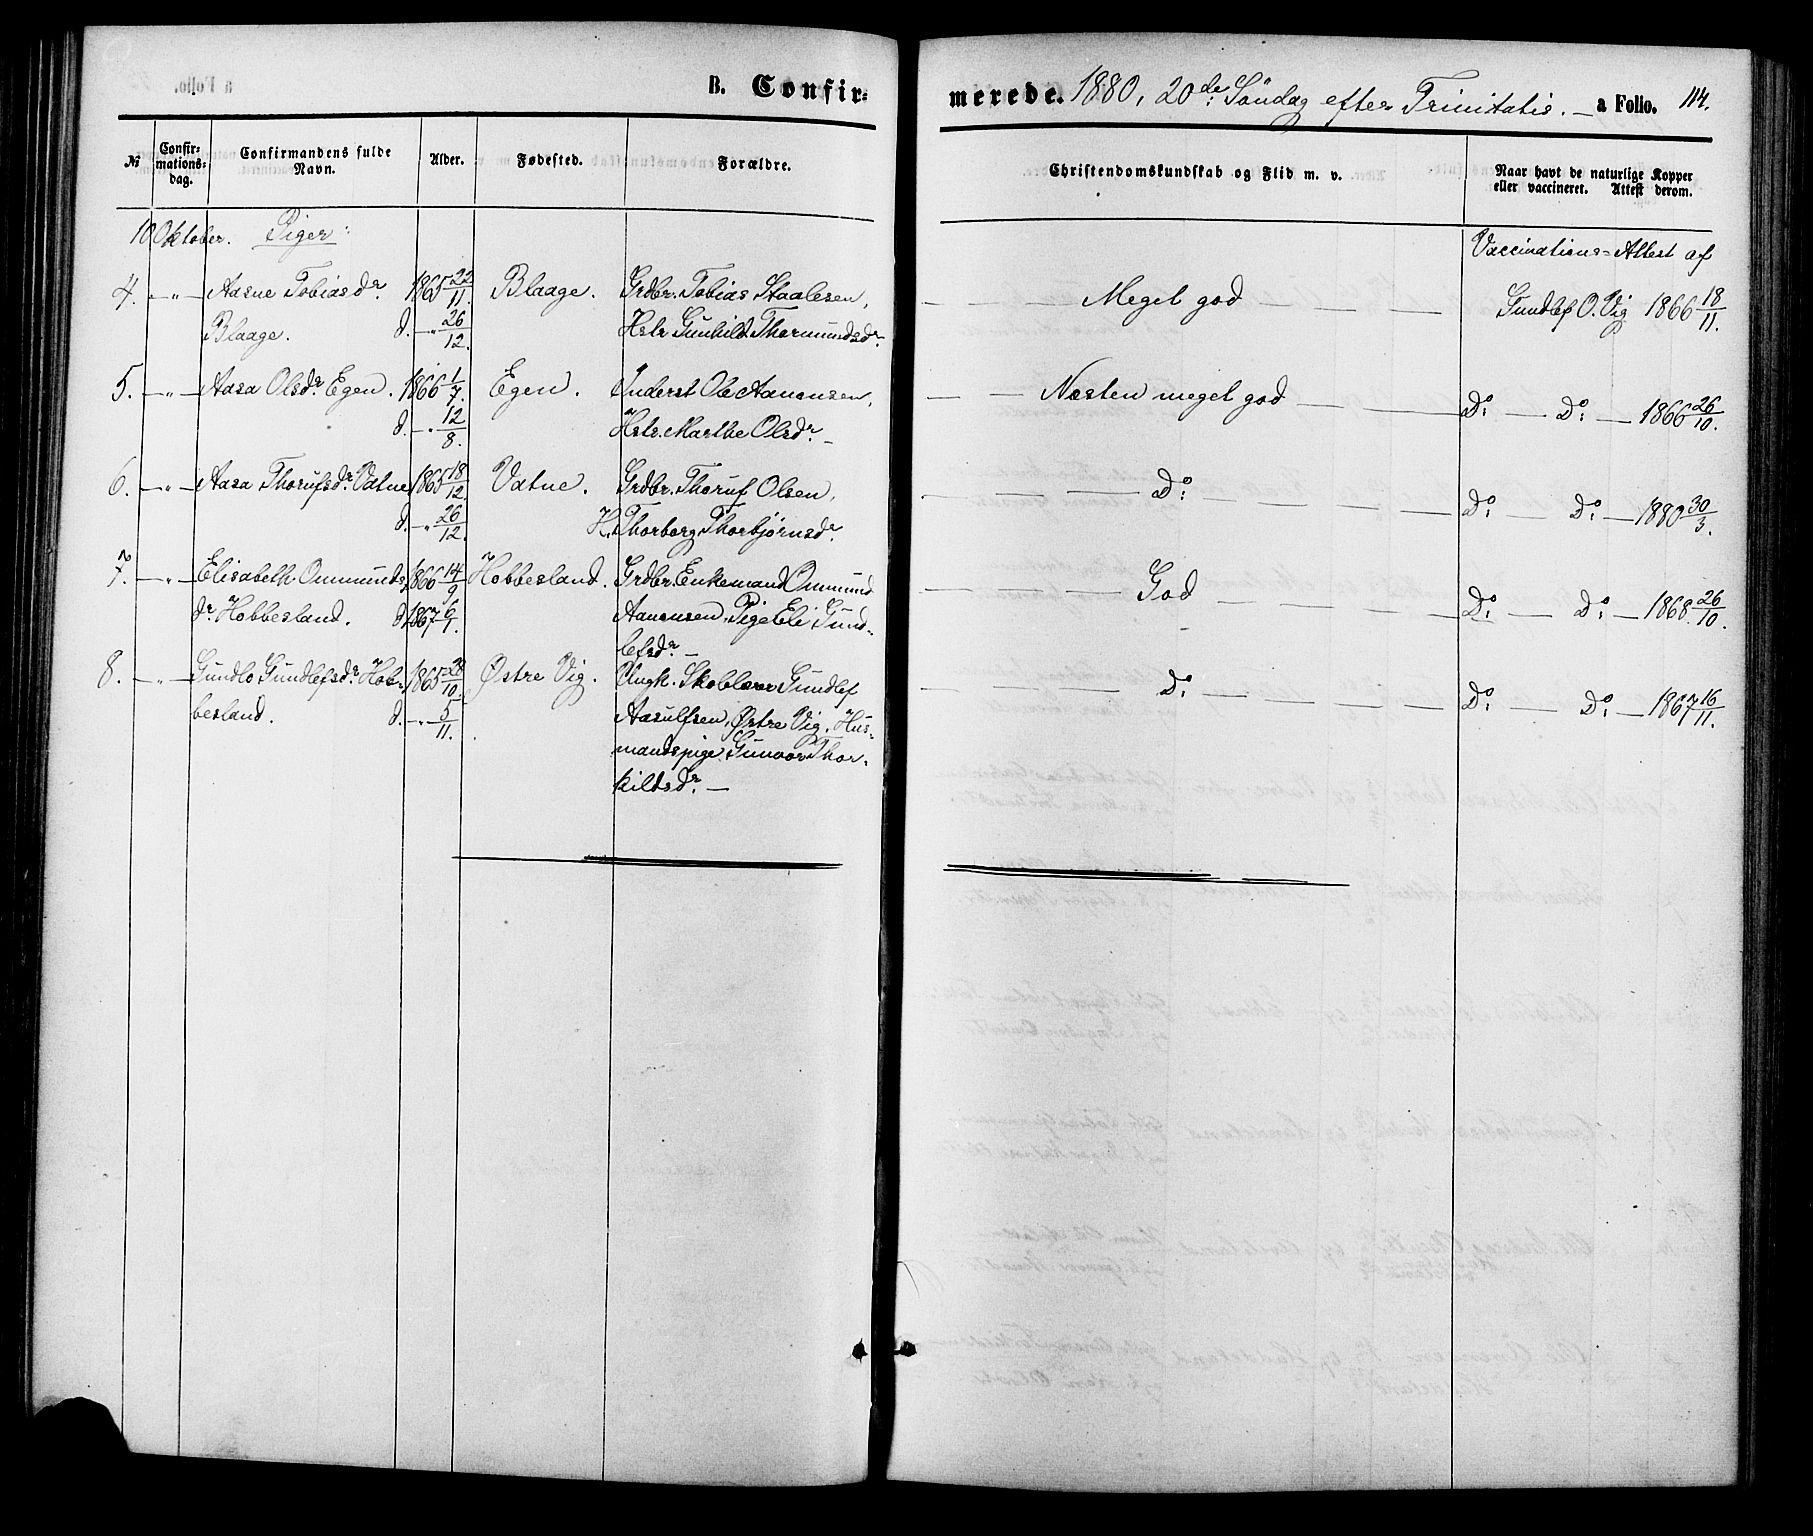 a Folio.
B. Confirmerede. 1880, 20de Søndag efter Trinitatis. — a Folio. 114.
№ Confirmationsdag. Confirmandens fulde Navn. Alder. Fødested. Forældre. Christendomskundskab og Flid m. v. Naar havt de naturlige Kopper eller vaccineret. Attest derom.
10 Oktober. Piger:
Vaccinations-Attest af
4. — " — Aasne Tobiasdr. 1865 22/11. Blaage. Grdbr. Tobias Staalesen, — Meget god — Gundlef O. Vig 1866 18/11.
Blaage. d. — " 26/12. Hstr Gunhild Thormundsdr.
5. — " — Aasa Olsdr. Egen. 1866 1/7. Egen. Inderst Ole Aanonsen, — Næsten meget god — Do: — Do: — 1866 26/10.
d. — " 12/8. Hstr. Marthe Olsdr. —
6. — " — Aasa Thorufsdr. Vatne 1865 18/12. Vatne. Grdbr. Thoruf Olsen, — Do: — Do: Do: — 1880 30/3.
d. — " 26/12. H. Thorborg Thorbjørnsdr.
7. — " — Elisabeth Ommunds 1866 14/9 Hobbesland. Grdbr. Enkemand Ommund — God — Do: — Do: — 1868 26/10.
dr. Hobbesland. d. 1867 6/1. Aanonsen, Pige Eli Gund-
lefsdr. —
8. — " — Gundlo Gundlefsdr. Hob- 1865 28/10. Østre Vig. Ungk. Skolelærer Gundlef — Do: — Do: Do: — 1867 16/11.
besland. d. — " 5/11. Aasulfsen, Østre Vig, Hus-
mandspige Gunvor Thor-
kildsdr. —